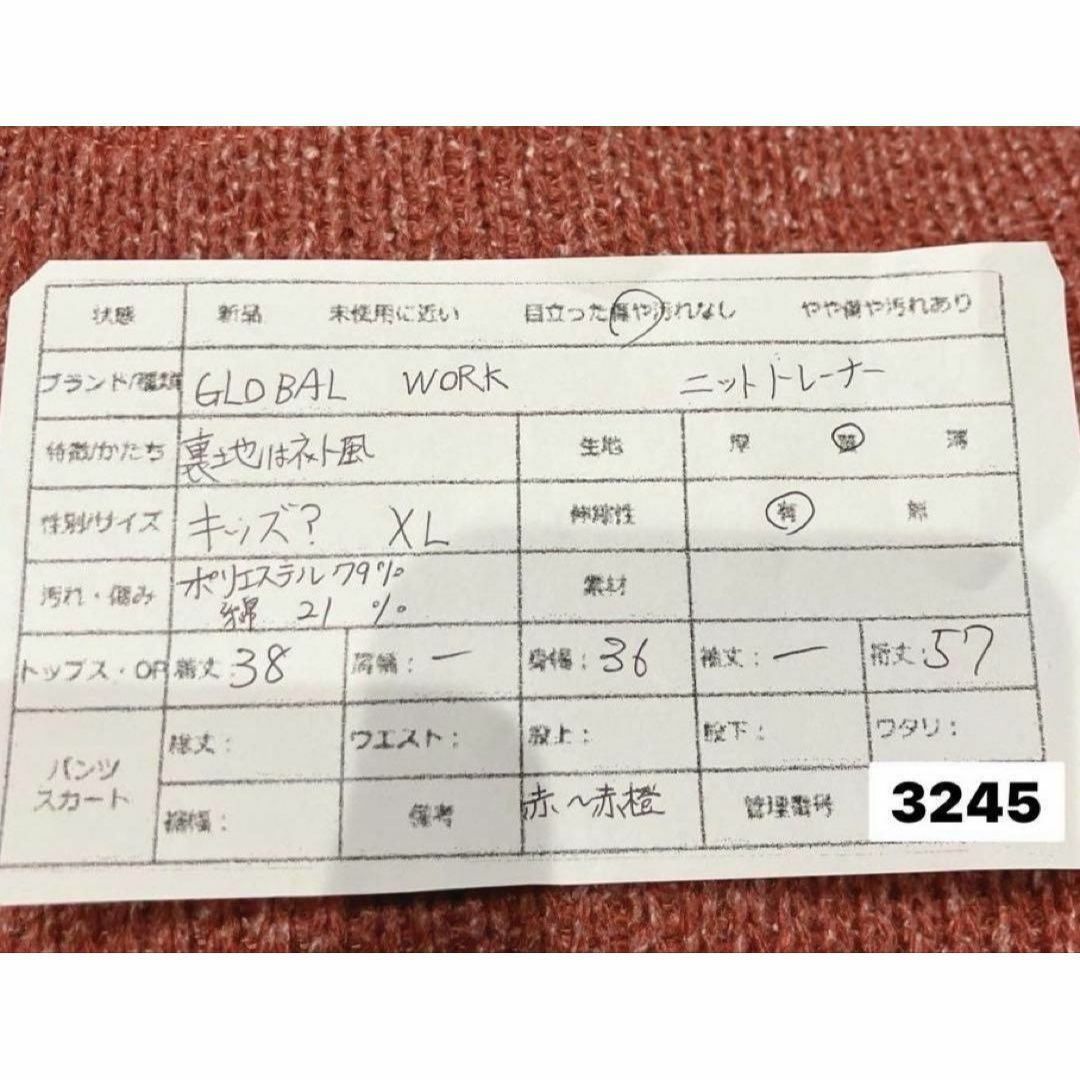 状態 新品 未使用に近い 目立った傷や汚れなし やや傷や汚れあり
ブランド/種類 GLOBAL WORK ニットトレーナー
特徴/かたち 裏地はネット風 生地 厚 普 薄
性別/サイズ キッズ? XL 伸縮性 有 無
汚れ・傷み ポリエステル79% 素材
綿 21 %
トップス・OP 着丈:38 肩幅:ー 身幅:36 袖丈:ー 裄丈:57
パンツ 総丈: ウエスト: 股上: 股下: ワタリ:
スカート 裾幅: 備考 赤〜赤橙 管理番号 3245